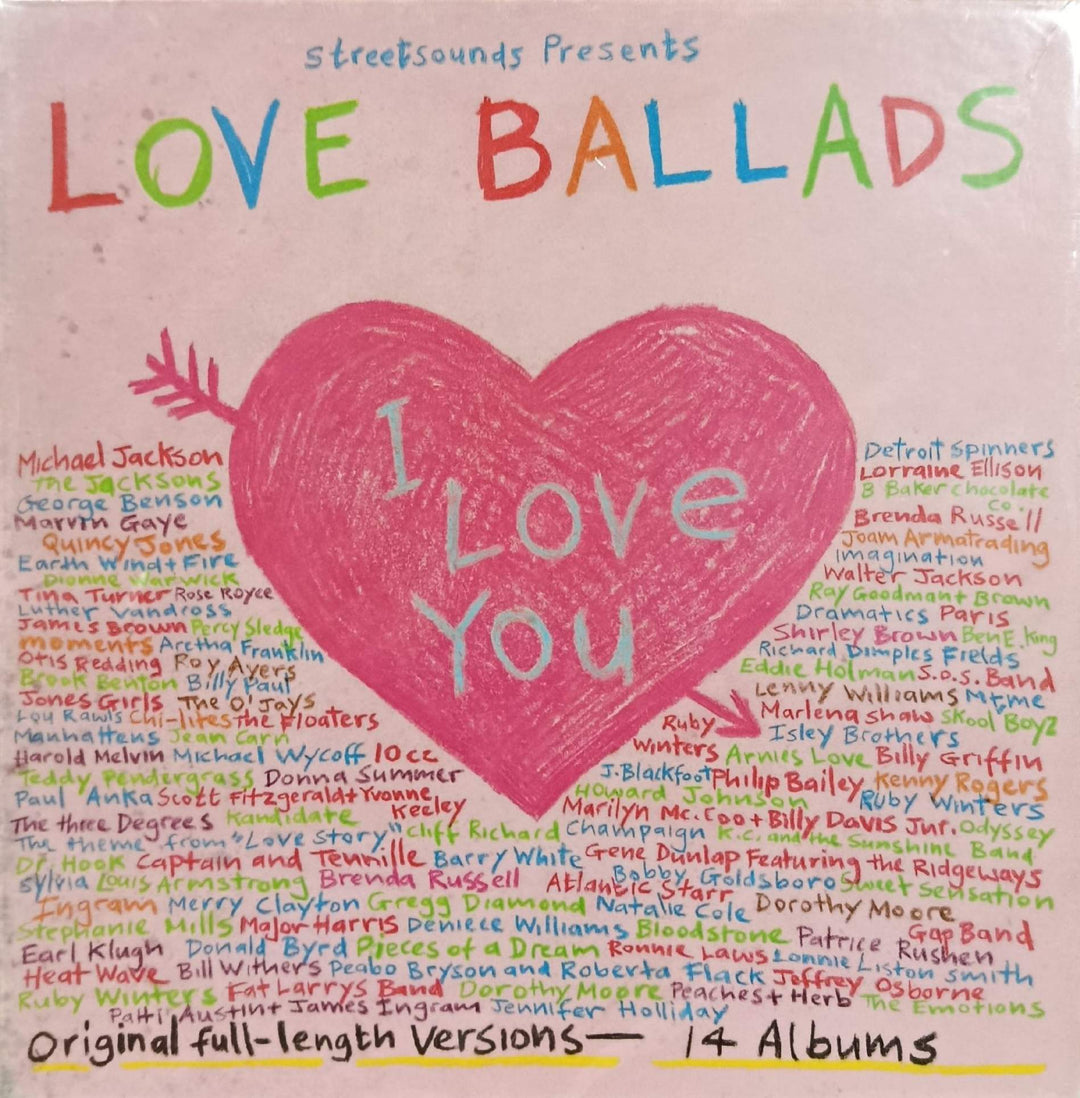 streetsounds Presents
LOVE BALLADS
I
Love
You
Michael Jackson
The Jacksons
George Benson
Marvin Gaye
Quincy Jones
Earth Wind + Fire
Dionne Warwick
Tina Turner Rose Royce
Luther Vandross
James Brown Percy Sledge
moments Aretha Franklin
Otis Redding Roy Ayers
Brook Benton Billy Paul
Jones Girls The O'Jays
Lou Rawls Chi-lites The Floaters
Manhattens Jean Carn
Harold Melvin Michael Wycoff 10cc
Teddy Pendergrass Donna Summer
Paul Anka Scott Fitzgerald + Yvonne
Keeley
The three Degrees Kandidate
Detroit Spinners
Lorraine Ellison
B Baker chocolate
co.
Brenda Russell
Joam Armatrading
imagination
Walter Jackson
Ray Goodman + Brown
Dramatics Paris
Shirley Brown Ben E. King
Richard Dimples Fields
Eddie Holman S.o.s. Band
Lenny Williams Mtume
Marlena Shaw Skool Boyz
Isley Brothers
Ruby
Winters Arnies Love Billy Griffin
J. Blackfoot Philip Bailey Kenny Rogers
Howard Johnson Ruby Winters
Marilyn Mc. Coo + Billy Davis Jnr. Odyssey
The theme from "Love Story" Cliff Richard Champaign K.C. and the Sunshine Band
Dr. Hook Captain and Tennille Barry White Gene Dunlap Featuring the Ridgeways
Sylvia Louis Armstrong Brenda Russell Atlantic Starr Bobby Goldsboro Sweet Sensation
Ingram Merry Clayton Gregg Diamond Natalie Cole Dorothy Moore
Stephanie Mills Major Harris Deniece Williams Bloodstone Patrice Rushen Gap Band
Earl Klugh Donald Byrd Pieces of a Dream Ronnie Laws Lonnie Liston Smith
Heat Wave Bill Withers Peabo Bryson and Roberta Flack Jeffrey Osborne
Ruby Winters Fat Larrys Band Dorothy Moore Peaches + Herb The Emotions
Patti Austin + James Ingram Jennifer Holliday
Original full-length Versions — 14 Albums